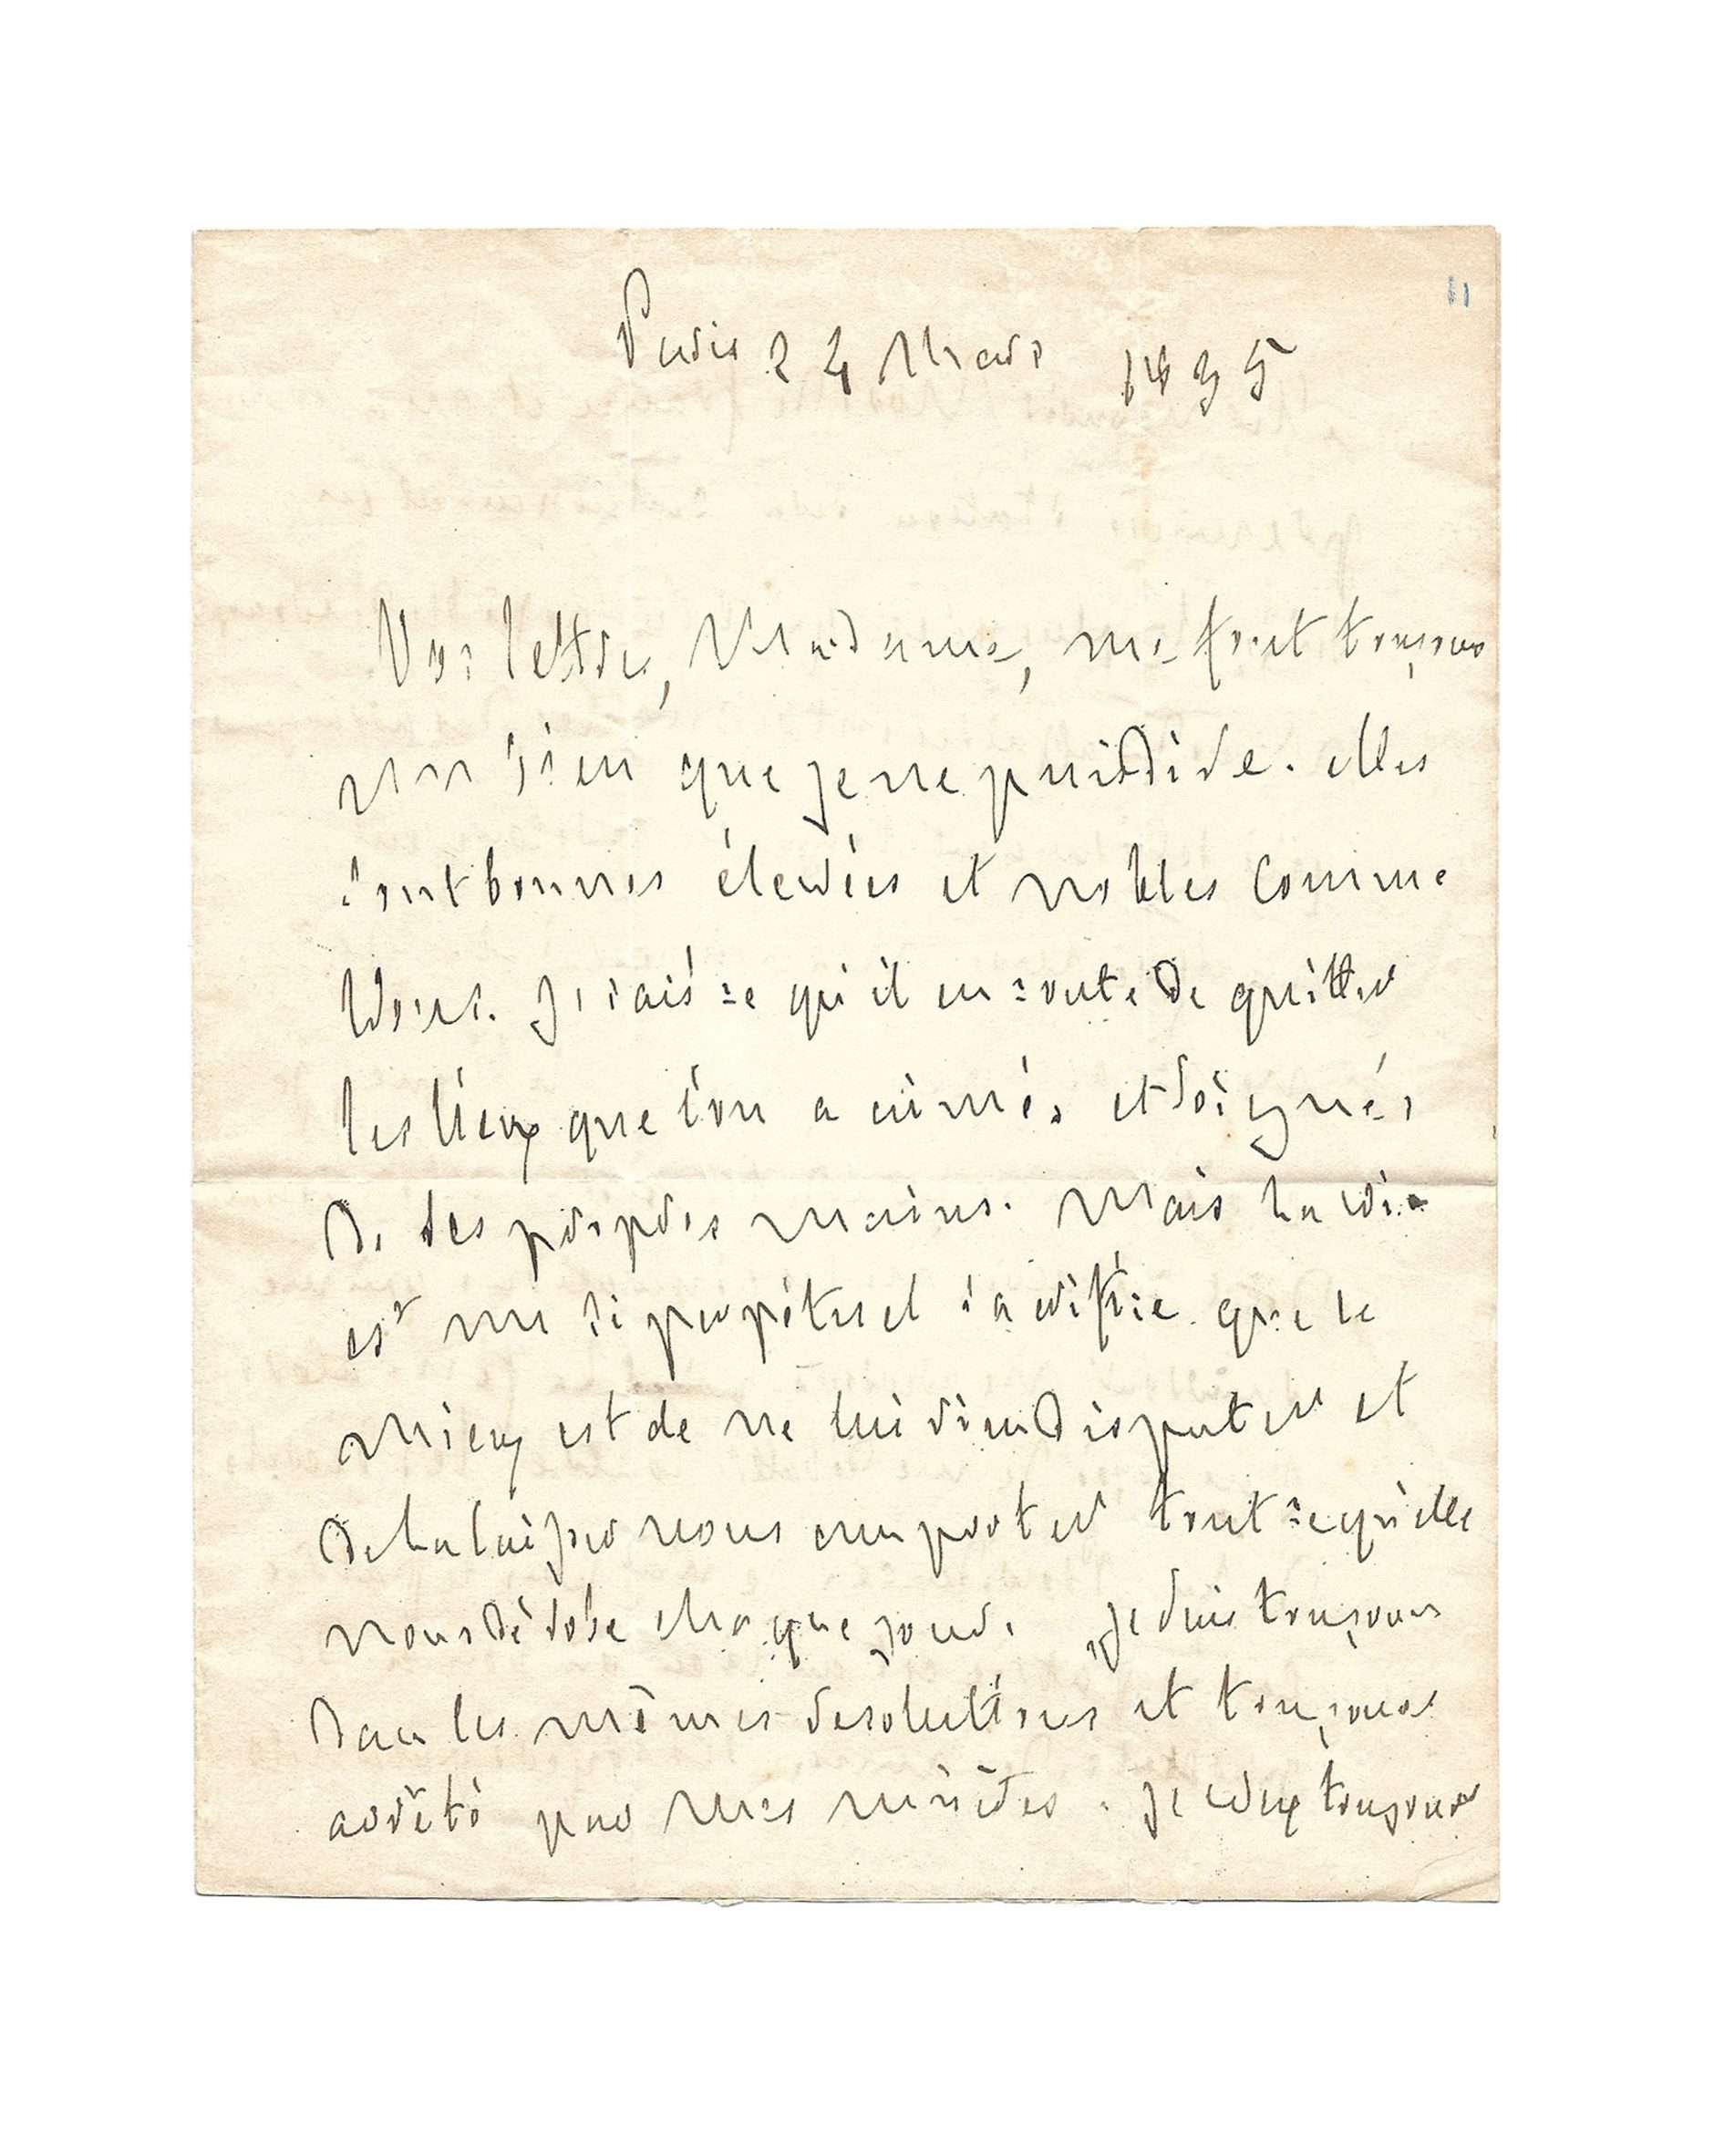 11
Paris 24 Mars 1835
Vos lettres, Madame, me font toujours
un bien que je ne puis dire. elles
sont bonnes élevées et nobles comme
vous. Je sais ce qu'il en coute de quitter
les lieux que l'on a aimés et soignés
de ses propres mains. Mais la vie
est un si perpétuel sacrifice que le
mieux est de ne lui rien disputer et
de la laisser nous emporter tout ce qu'elle
nous dérobe chaque jour. Je suis toujours
dans les mêmes resolutions et toujours
arrêté par mes misères. Je veux toujours